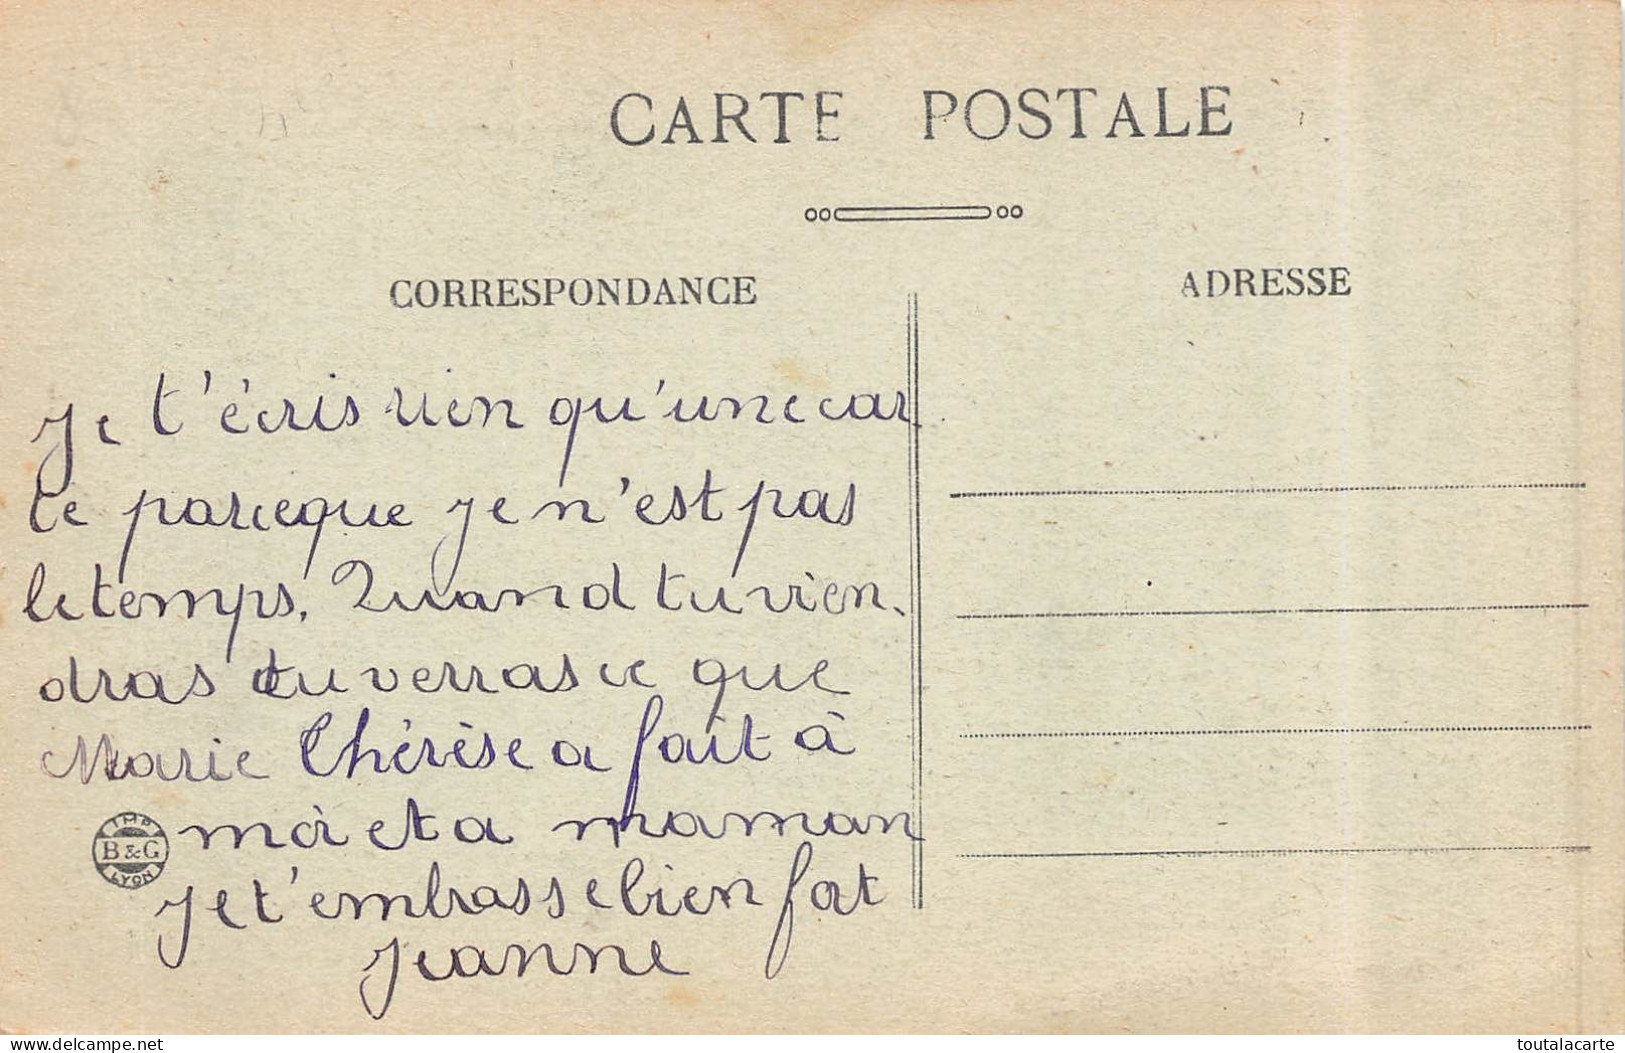 CARTE POSTALE
CORRESPONDANCE
ADRESSE
Je t'écris rien qu'une car
te parceque je n'est pas
le temps. Quand tu vien-
dras tu verras ce que
Marie Thérèse a fait à
moi et a maman
Je t'embrasse bien fort
Jeanne
IMP
B & G
LYON
delcampe.net
toutalacarte